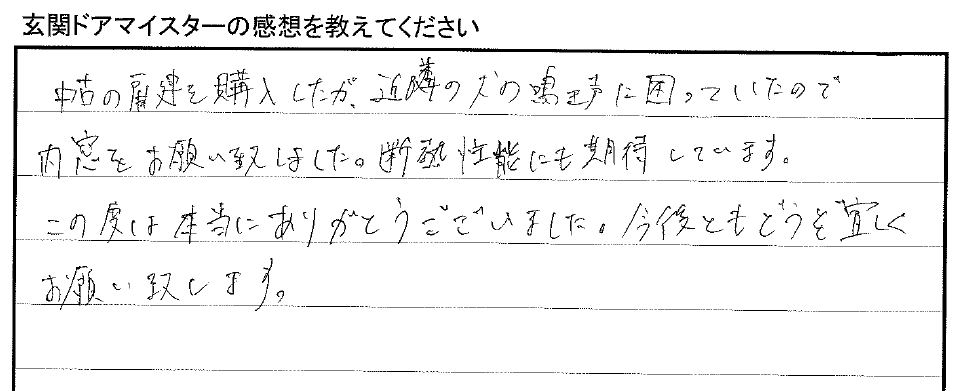 玄関ドアマイスターの感想を教えてください
中古の戸建を購入したが、近隣の犬の鳴声に困っていたので
内窓をお願い致しました。断熱性能にも期待しています。
この度は本当にありがとうございました。今後ともどうぞ宜しく
お願い致します。